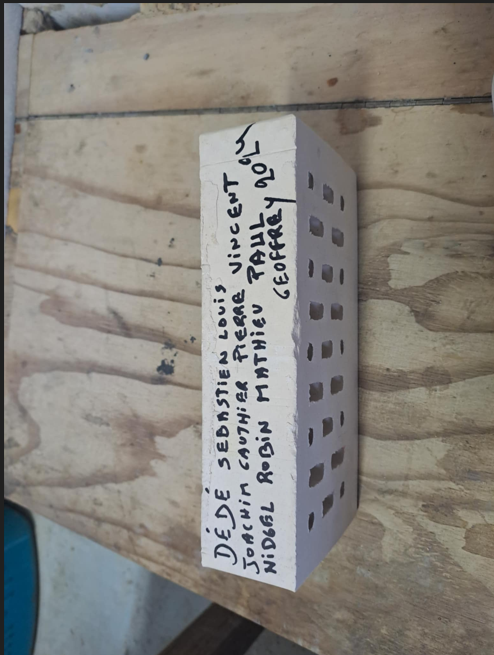 DÉDÉ SEBASTIEN LOUIS
JOACHIM GAUTHIER PIERRE VINCENT
NIDGEL ROBIN MATHIEU PAUL
GEOFFREY 2024